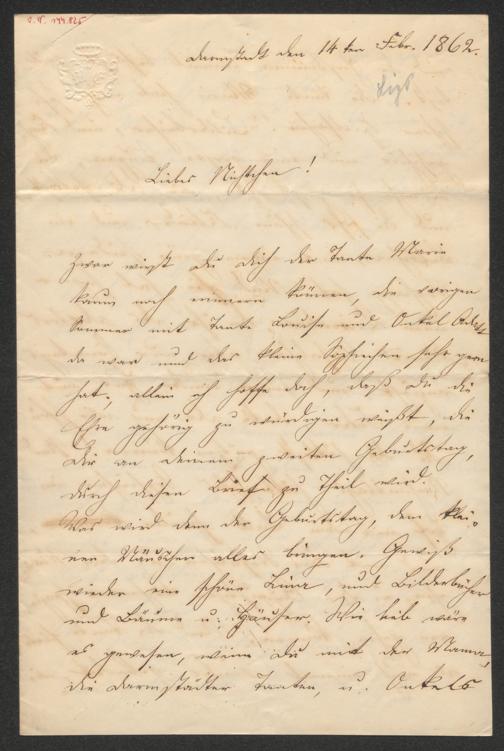 Darmstadt den 14 ten Febr. 1862.
Liebes Nichtchen!
Zwar wirst du dich der Tante Marie
kaum noch erinnern können, die vorigen
Sommer mit Tante Louise und Onkel
da war und das kleine Sophiechen sehr gern
hat, allein ich hoffe doch, daß du die
Ehre gehörig zu würdigen weißt, die
dir an deinem zweiten Geburtstag,
durch diesen Brief zu Theil wird.
Was wird denn der Geburtstag, dem klei-
nen Mäuschen alles bringen. Gewiß
wieder eine schöne und Bilderbücher
und Bäume u. Häuser. Wie lieb wäre
es gewesen, wenn du mit der Mama,
die Darmstädter Tanten, u. Onkels